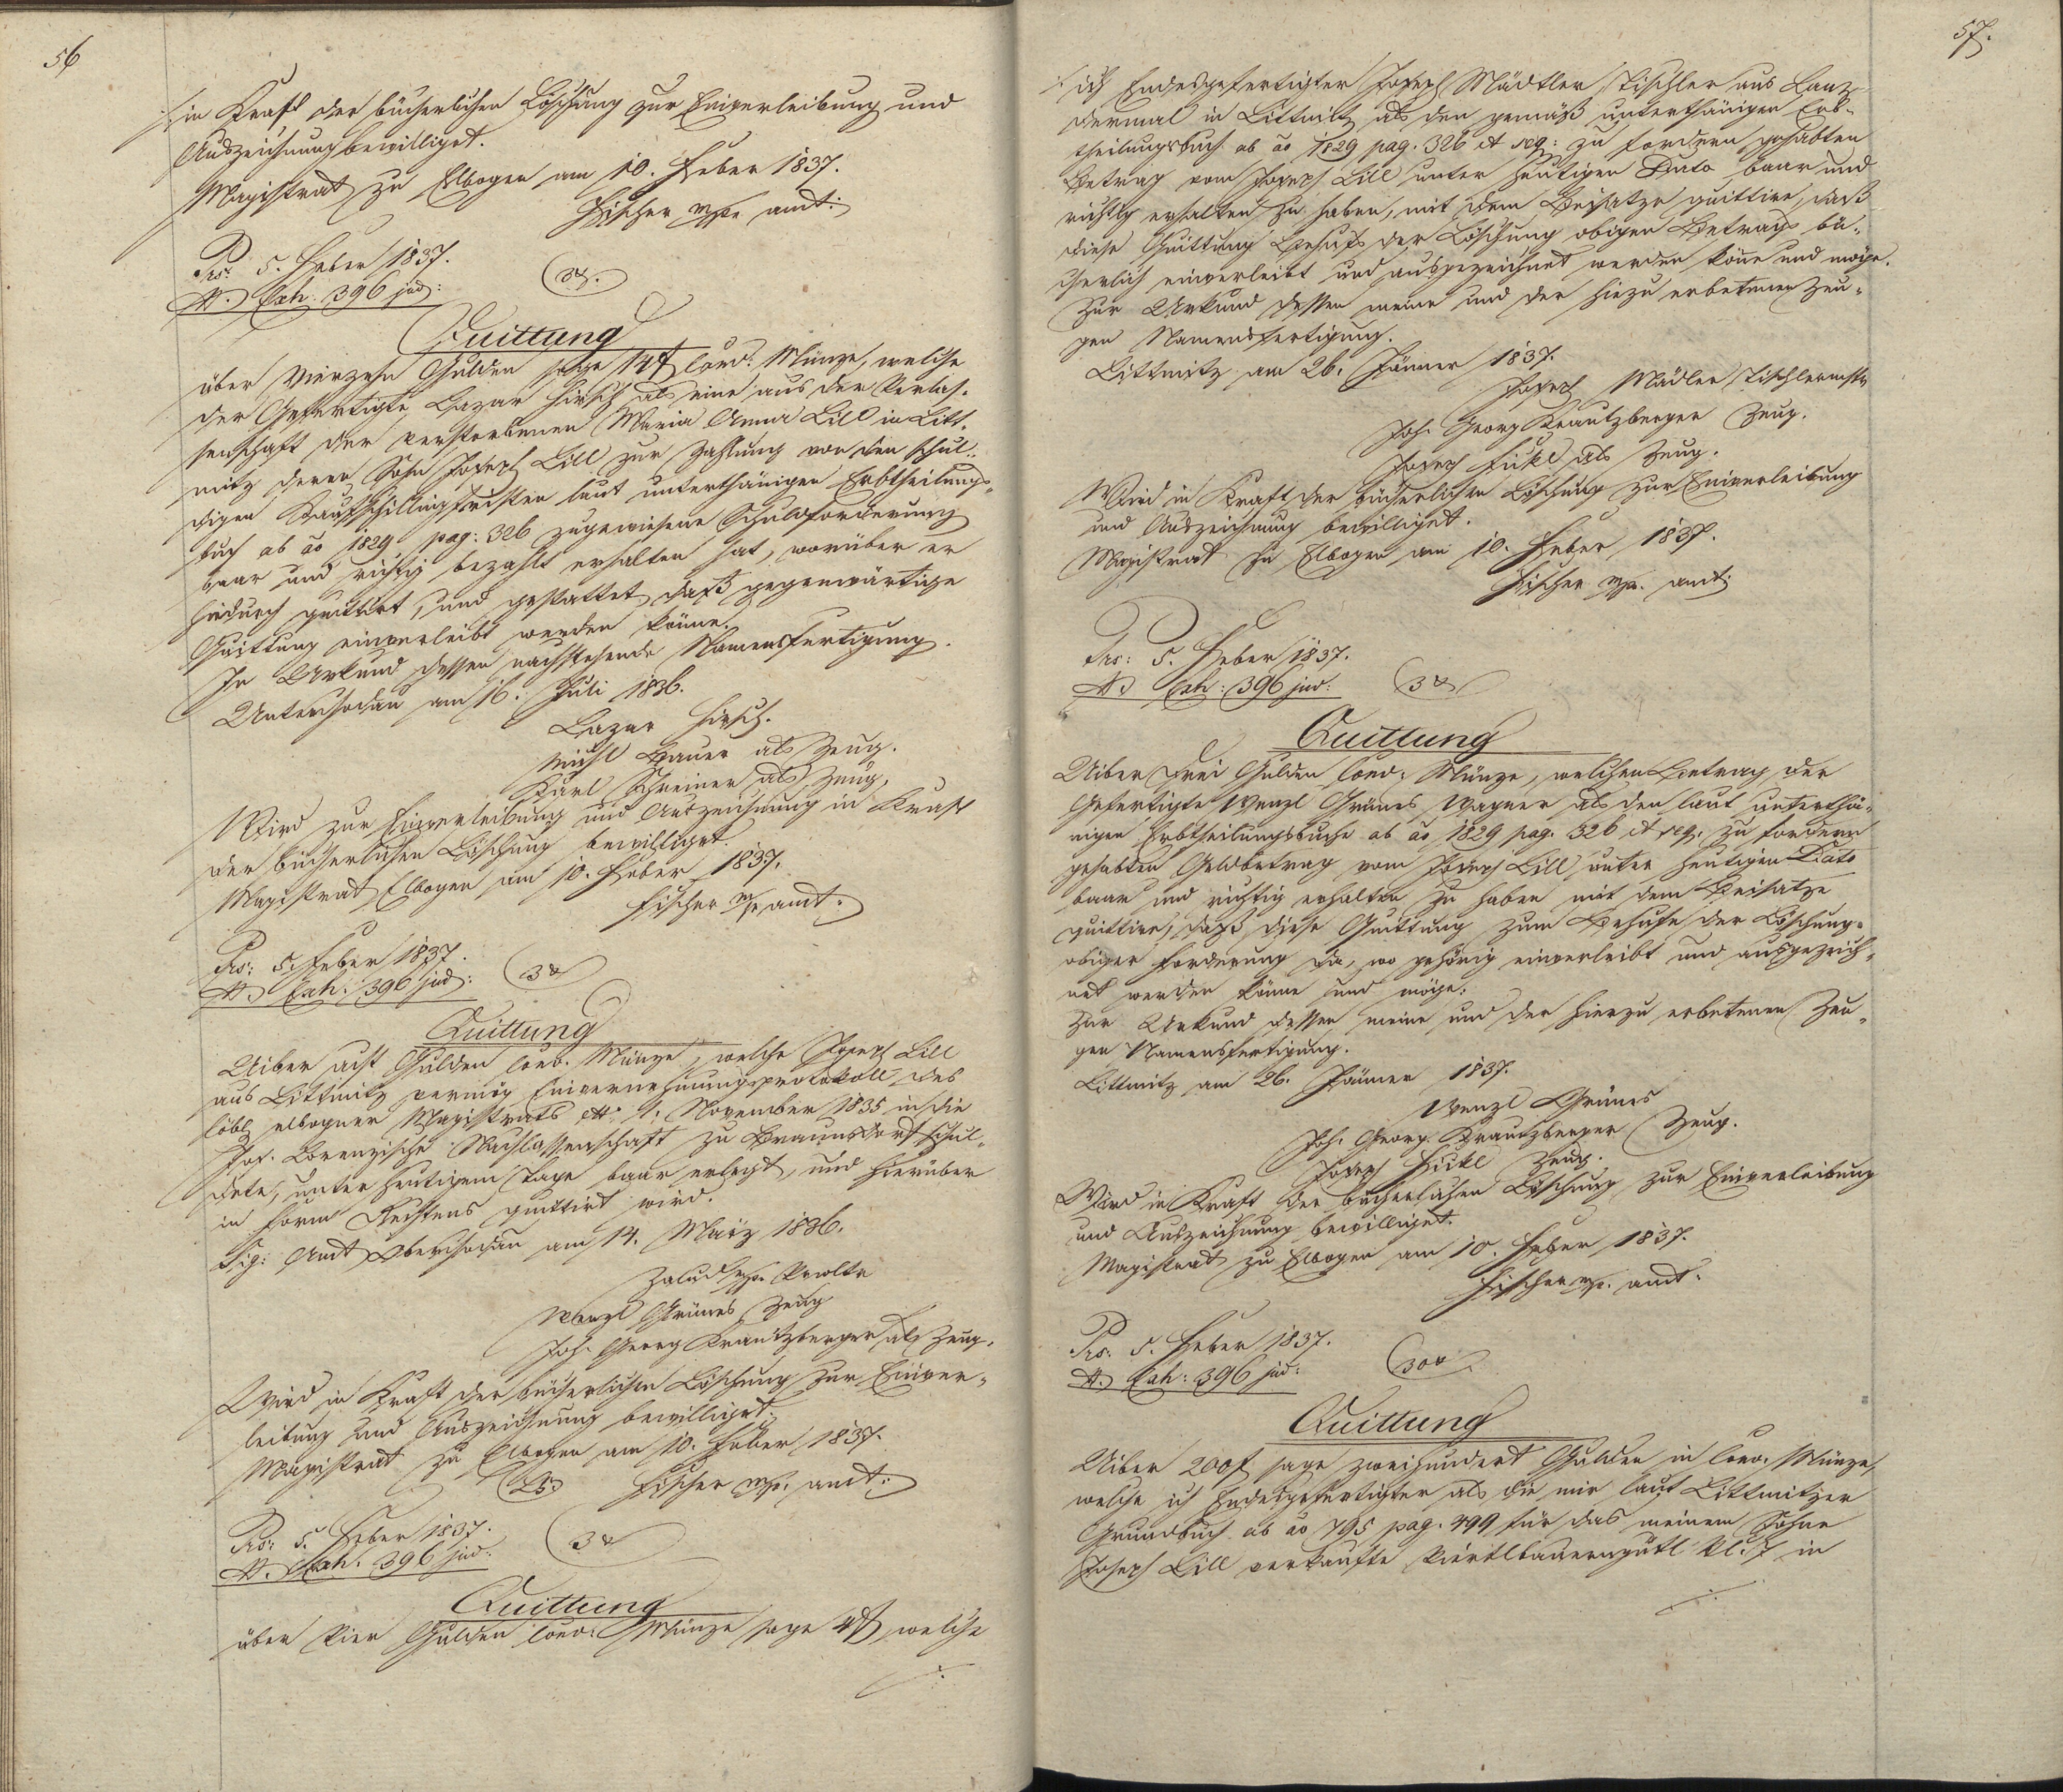 56
:/: in Kraft der bücherlichen Löschung zur Einverleibung und
Auszeichnung bewilliget.
Magistrat zu Elbogen am 10. Feber 1837.
Fischer mpr amt:
Prs: 5. Feber 1837.
N. Exh. 396 jud:
Quittung
über Vierzehn Gulden sage 14 f Conv. Münze, welche
der Gefertigte Lazar Hirsch als eine aus der Verlas-
senschaft der verstorbenen Maria Anna Lill in Litt-
mitz deren Sohn Joseph Lill zur Zahlung von den schul-
digen Kaufschillingsfristen laut unterthänigen Erbtheilungs-
buch ab ao 1829 pag: 326 zugewiesene Schuldforderung
baar und richtig bezahlt erhalten hat, worüber er
hiedurch quittirt, und gestattet, daß gegenwärtige
Quittung einverleibt werden könne.
In Urkund dessen nachstehende Namensfertigung.
Unterchodau am 16. Juli 1836.
Lazar Hirsch.
Michl Bauer als Zeug.
Karl Schreiner als Zeug.
Wird zur Einverleibung und Auszeichnung in Kraft
der bücherlichen Löschung bewilliget.
Magistrat Elbogen am 10. Feber 1837.
Fischer mp amt:
Prs: 5. Feber 1837.
N. Exh: 396 jud:
3 x
Quittung
Uiber acht Gulden Conv. Münze, welche Joseph Lill
aus Littmitz vermög Einvernehmungsprotokoll des
löbl elbogner Magistrats dto 1. November 1835 in die
Jos. Lorenzische Nachlassenschaft zu Braunsdorf schul-
dete, unter heutigem Tage baar erlegt, und hierüber
in Form Rechtens quittirt wird.
Sig: Amt Oberchodau am 14. März 1836.
Zalud mpr Verwltr
Wenzl Grünes Zeug
Joh. Georg Krautzberger als Zeug.
Wird in Kraft der bücherlichen Löschung zur Einver-
leibung und Auszeichnung bewilliget.
Magistrat zu Elbogen am 10. Feber 1837.
Fischer mpr. amt:
Prs: 5. Feber 1837.
N. Exh. 396 jud.
3 x
Quittung
über Vier Gulden Conv: Münze sage 4 f, welche
57.
:/: ich Endesgefertigter Joseph Mädtler Tischler aus Lanz
dermal in Littmitz als den gemäß unterthänigen Erb-
theilungsbuch ab ao 1829 pag. 326 et seq: zu fordern gehabten
Betrag vom Joseph Lill unter heutigen Dato baar und
richtig erhalten zu haben, mit dem Beisatze quittire, daß
diese Quittung Behufs der Löschung obigen Betrags bü-
cherlich einverleibt und ausgezeichnet werden könne und möge.
Zur Urkund dessen meine und der hiezu erbetenen Zeu-
gen Namensfertigung.
Littmitz am 26. Jänner 1837.
Joseph Mädler Tischlermstr
Joh. Georg Krautzberger Zeug.
Joseph Hükl als Zeug.
Wird in Kraft der bücherlichen Löschung zur Einverleibung
und Auszeichnung bewilliget.
Magistrat zu Elbogen am 10. Feber 1837.
Fischer mpr. amt:
Prs: 5. Feber 1837.
N. Exh: 396 jud:
3 x
Quittung
Uiber Drei Gulden Conv: Münze, welchen Betrag der
Gefertigte Wenzl Grünes Wagner als den laut unterthä-
nigen Erbtheilungsbuche ab ao 1829 pag. 326 et seq. zu fordern
gehabten Geldbetrag vom Joseph Lill unter heutigen Dato
baar und richtig erhalten zu haben mit dem Beisatze
quittire, daß diese Quittung zum Behufe der Löschung
obiger Forderung da, wo gehörig einverleibt und ausgezeich-
net werden könne und möge.
Zur Urkund dessen meine und der hierzu erbetenen Zeu-
gen Namensfertigung.
Littmitz am 26. Jänner 1837.
Wenzl Grünes
Joh. Georg Krautzberger Zeug.
Joseph Hükl Zeug.
Wird in Kraft der bücherlichen Löschung zur Einverleibung
und Auszeichnung bewilliget.
Magistrat zu Elbogen am 10. Feber 1837.
Fischer mpr. amt.
Prs: 5. Feber 1837.
N. Exh: 396 jud:
30 x
Quittung
Uiber 200 f sage zweihundert Gulden in Conv. Münze,
welche ich Endesgefertigter als die mir laut Littmitzer
Grundbuch ab ao 795 pag. 499 für das meinem Sohne
Joseph Lill verkaufte Viertlbauerngütl N. 7 in